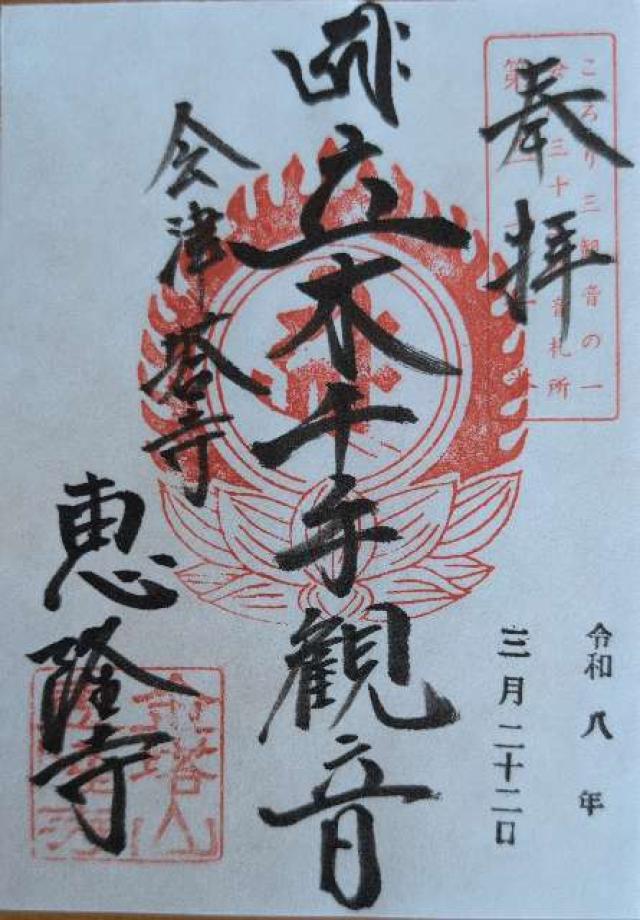 奉拝
ころり三観音の一
会津三十三観音札所
第三十一番
立木千手観音
会津塔寺
恵隆寺
令和八年
三月二十二日
金塔山
恵隆寺